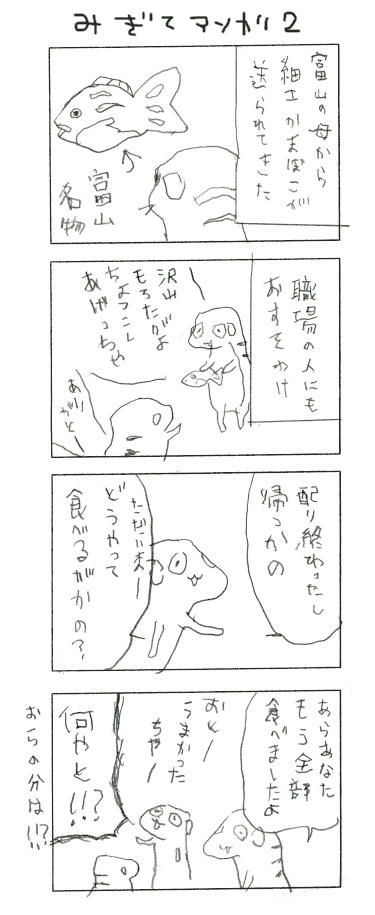 みぎてマンガ2
富山の母から
細工かまぼこが
送られてきました
富山
名物
職場の人にも
おすそわけ
沢山
もろたがよ
ちょっこし
あげっちゃ
ありがとー
配り終わったし
帰っかの
ただいまー
どうやって
食べるがかの?
あらあなた
もう全部
食べましたよ
おとー
うまかった
ちゃー
何やと!!?
おらの分は!!?